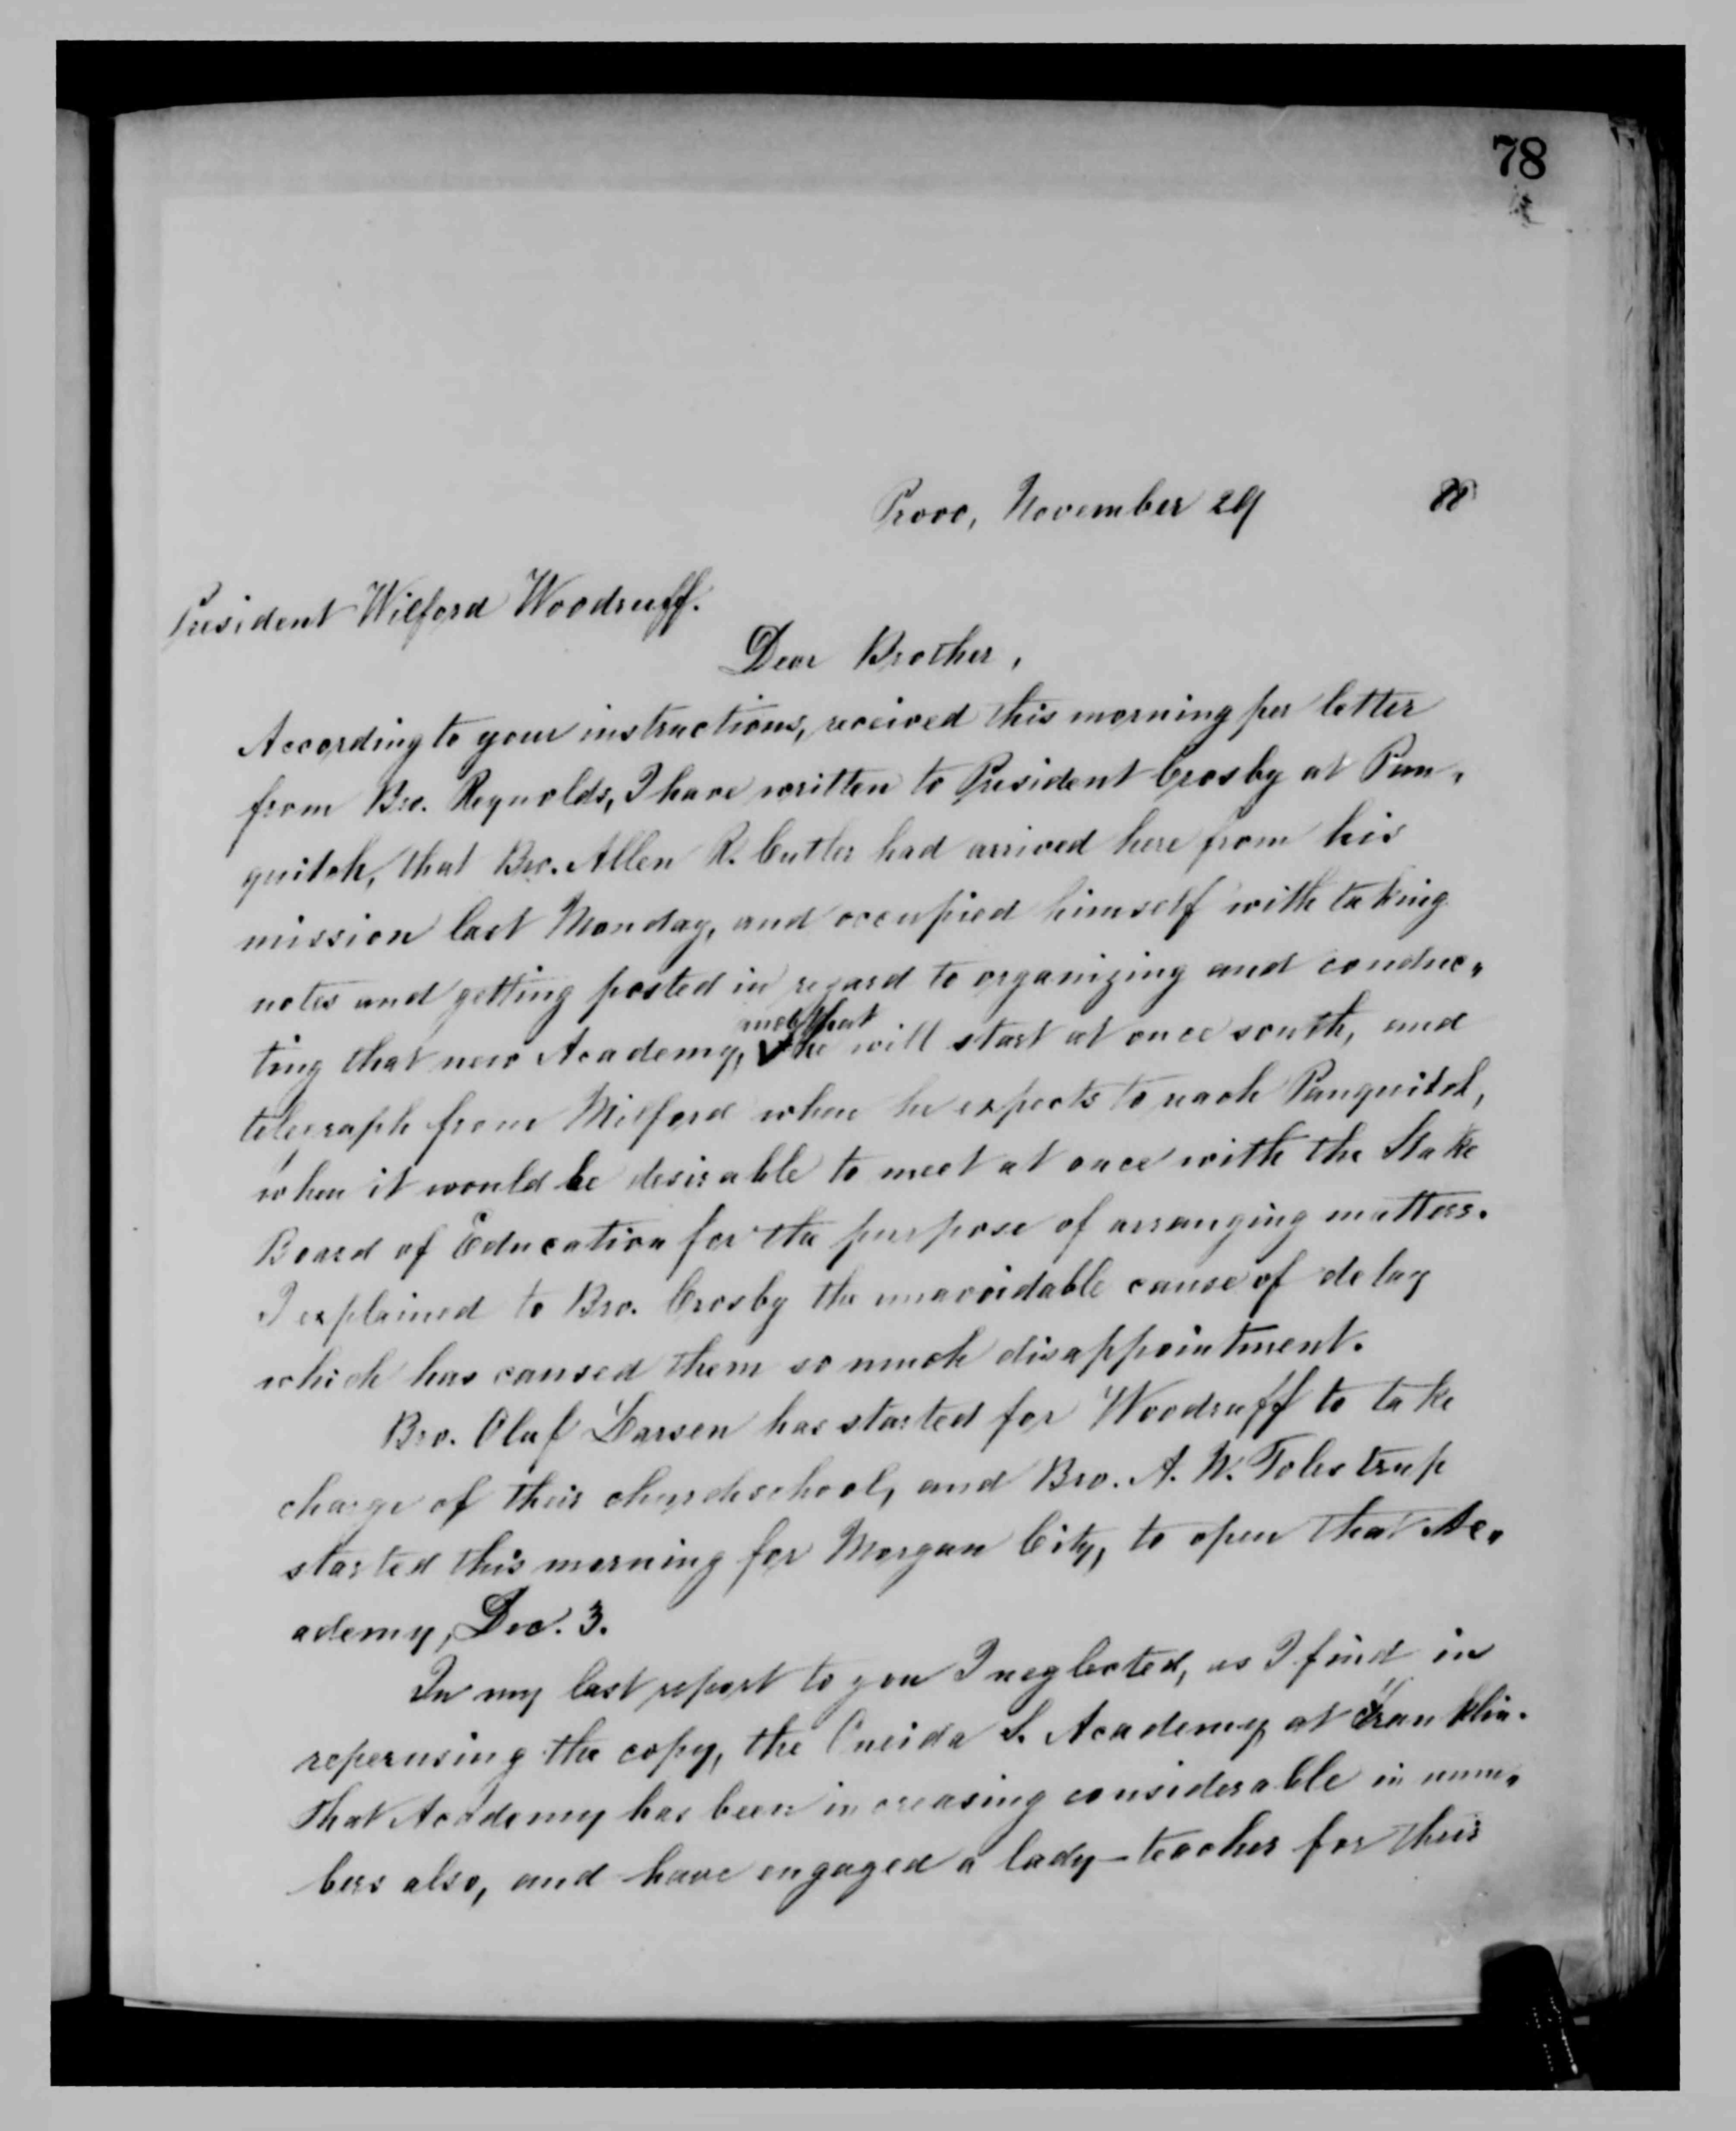 78
Provo, November 29 88
President Wilford Woodruff.
Dear Brother,
According to your instructions, received this morning per letter
from Bro. Reynolds, I have written to President Crosby at Pan-
guitch, that Bro. Allen R. Cutler had arrived here from his
mission last Monday, and occupied himself with taking
notes and getting posted in regard to organizing and conduc-
and that
ting that new Academy, he will start at once south, and
telegraph from Milford when he expects to reach Panguitch,
when it would be desirable to meet at once with the Stake
Board of Education for the purpose of arranging matters.
I explained to Bro. Crosby the unavoidable cause of delay
which has caused them so much disappointment.
Bro. Olaf Larsen has started for Woodruff to take
charge of their churchschool, and Bro. A. W. Tolestrup
started this morning for Morgan City, to open that Ac-
ademy, Dec. 3.
In my last report to you I neglected, as I find in
reperusing the copy, the Oneida S. Academy at Franklin.
That Academy has been increasing considerable in num-
bers also, and have engaged a lady-teacher for their